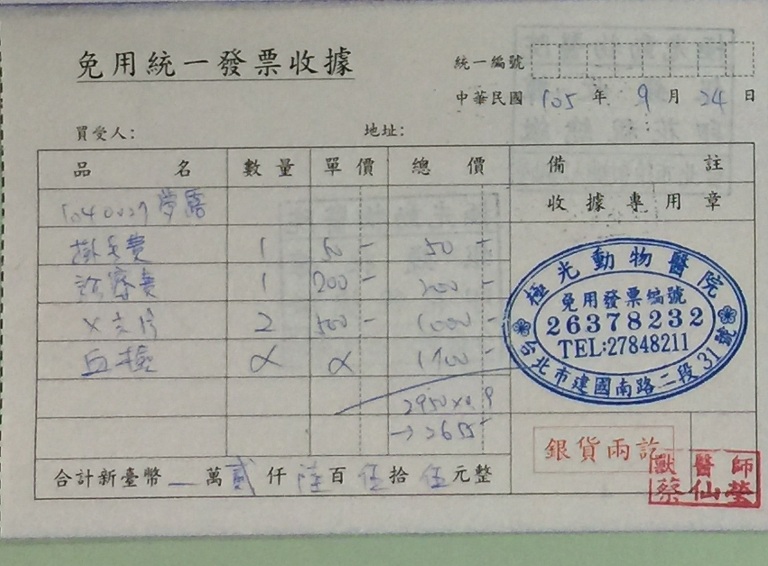 免用統一發票收據
統一編號
中華民國 105 年 9 月 24 日
買受人: 地址:
品名 數量 單價 總價 備註
1040027 夢露 收據專用章
掛号費 1 50- 50-
診療費 1 200- 200-
X光片 2 500- 1000-
血檢 α α 1700-
2950×0.9
→2655
極光動物醫院
免用發票編號
26378232
TEL:27848211
台北市建國南路二段31號
銀貨兩訖
獸醫師
蔡仙瑩
合計新臺幣 — 萬 貳 仟 陸 百 伍 拾 伍 元整